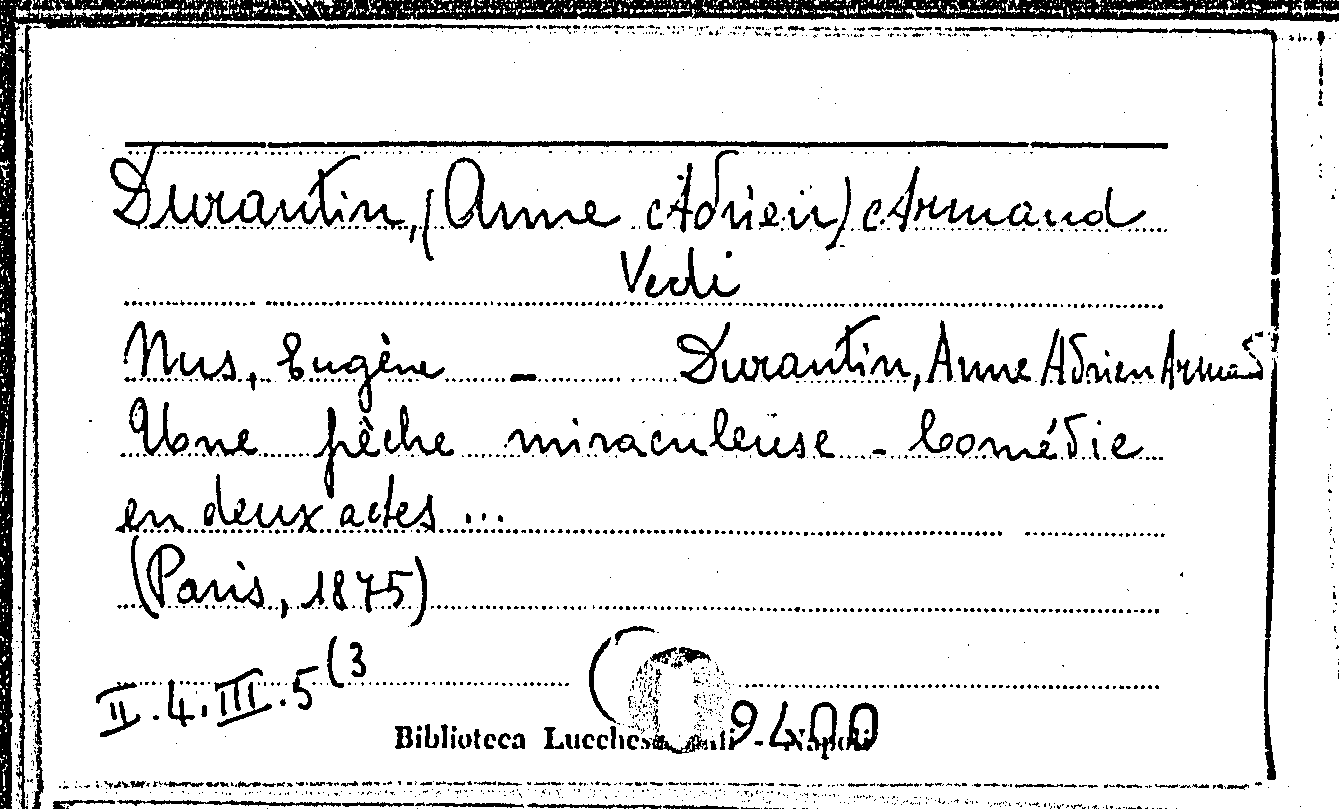 Durantin, (Anne Adrien) Armand
Vedi
Nus, Eugène - Durantin, Anne Adrien Armand
Une pêche miraculeuse - Comédie
en deux actes ...
(Paris, 1875)
II.4.III.5(3
9400
Biblioteca - Napoli